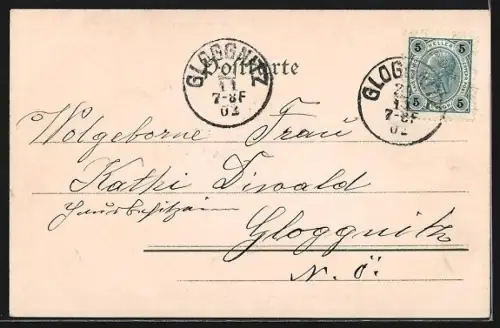 Postkarte
GLOGGNITZ
11
7-8F
02
GLOGG
11
7-8F
02
5 HELLER 5
5 5
Wolgeborne Frau
Kathi Diwald
Hausbesitzerin
Gloggnitz
N. Ö.